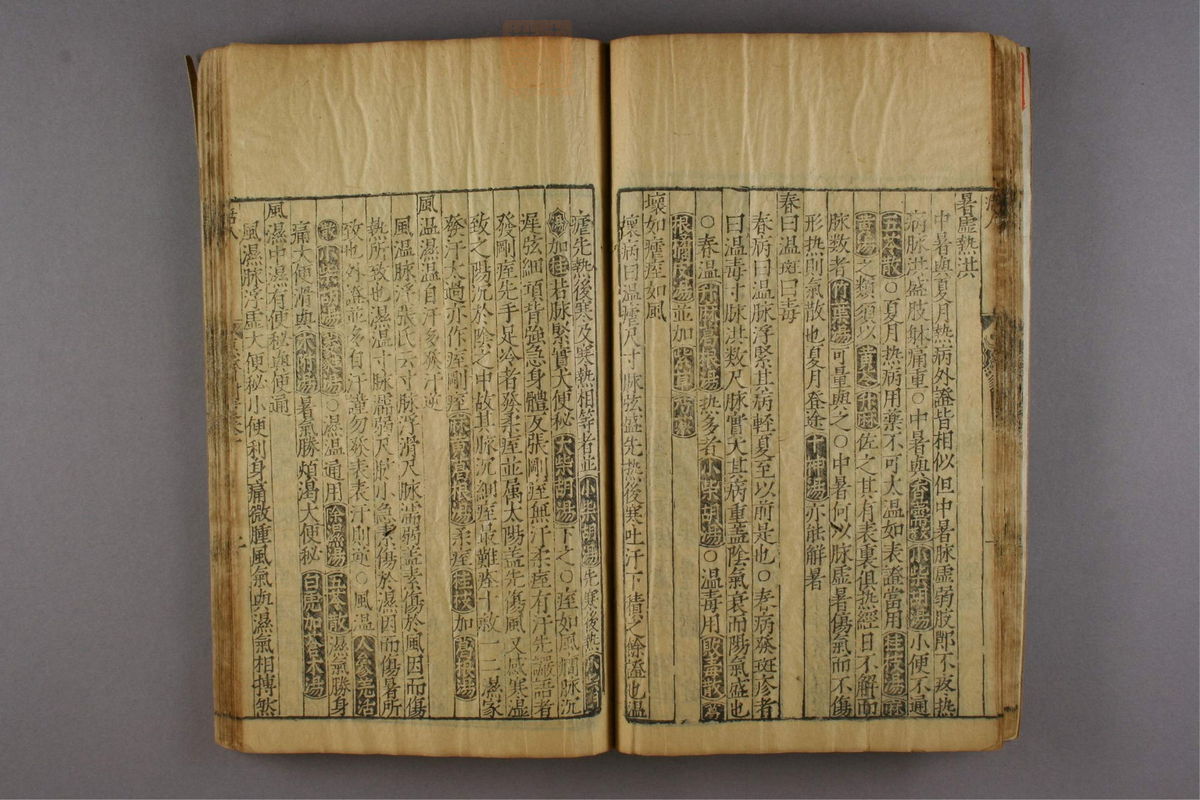 暑虛熱洪
中暑與夏月熱病外證皆相似但中暑脉虛弱肢節不疼热
病脉洪盛肢躰痛重○中暑與香薷散小柴胡湯小便不通
五苓散○夏月热病用藥不可太温如表證當用桂枝湯麻
黄湯之類須以黄芩升麻佐之其有表裏俱热經日不解而
脉数者竹葉湯可量與之○中暑何以脉虛暑傷氣而不傷
形热則氣散也夏月登途十神湯亦能解暑
春曰温斑曰毒
春病曰温脉浮緊其病輕夏至以前是也○春病發斑疹者
曰温毒寸脉洪数尺脉實大其病重蓋陰氣衰而陽氣盛也
○春温升麻葛根湯热多者小柴胡湯○温毒用敗毒散葛
根橘皮湯並加紫草防
壞如瘧痓如風
壞病曰温瘧尺寸脉弦盛先热後寒吐汗下積久餘證也温
瘧先熱後寒及寒熱相等者並小柴胡湯先寒後熱小柴胡
湯加桂若脉緊實大便秘大柴胡湯下之○痓如風癎脉沉
遲弦細項背強急身體反張剛痓無汗柔痓有汗先譫語者
發剛痓先手足冷者發柔痓並属太陽盖先傷風又感寒濕
致之陽沉於陰之中故其脉沉細痓最難療十救一二濕家
發汗太過亦作痓剛痓麻黄葛根湯柔痓桂枝加葛根湯
風温濕温自汗多發汗逆
風温脉浮張氏云寸脉浮滑尺脉濡弱盖素傷於風因而傷
熱所致也濕温寸脉濡弱尺脉小急素傷於濕因而傷暑所
致也外證並多自汗謹勿發表表汗則逆○風温人參羌活
散小柴胡湯○濕温通用除濕湯五苓散濕氣勝身
痛大便滑與术附湯暑氣勝煩渴大便秘白虎加蒼术湯
風濕中濕有便秘與便通
風濕脉浮虛大便秘小便利身痛微腫風氣與濕氣相摶然